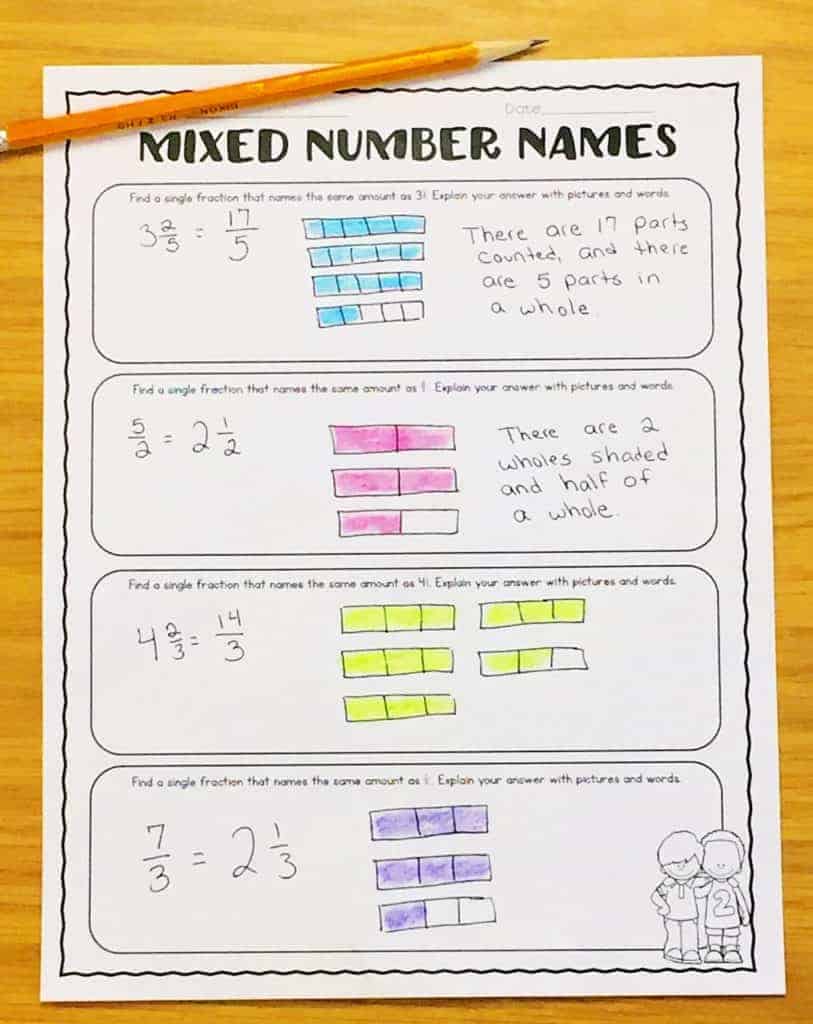 Date
MIXED NUMBER NAMES
Find a single fraction that names the same amount as Explain your answer with pictures and words.
3 2/5 = 17/5
There are 17 parts
counted, and there
are 5 parts in
a whole.
Find a single fraction that names the same amount as Explain your answer with pictures and words.
5/2 = 2 1/2
There are 2
wholes shaded
and half of
a whole.
Find a single fraction that names the same amount as Explain your answer with pictures and words.
4 2/3 = 14/3
Find a single fraction that names the same amount as Explain your answer with pictures and words.
7/3 = 2 1/3
2